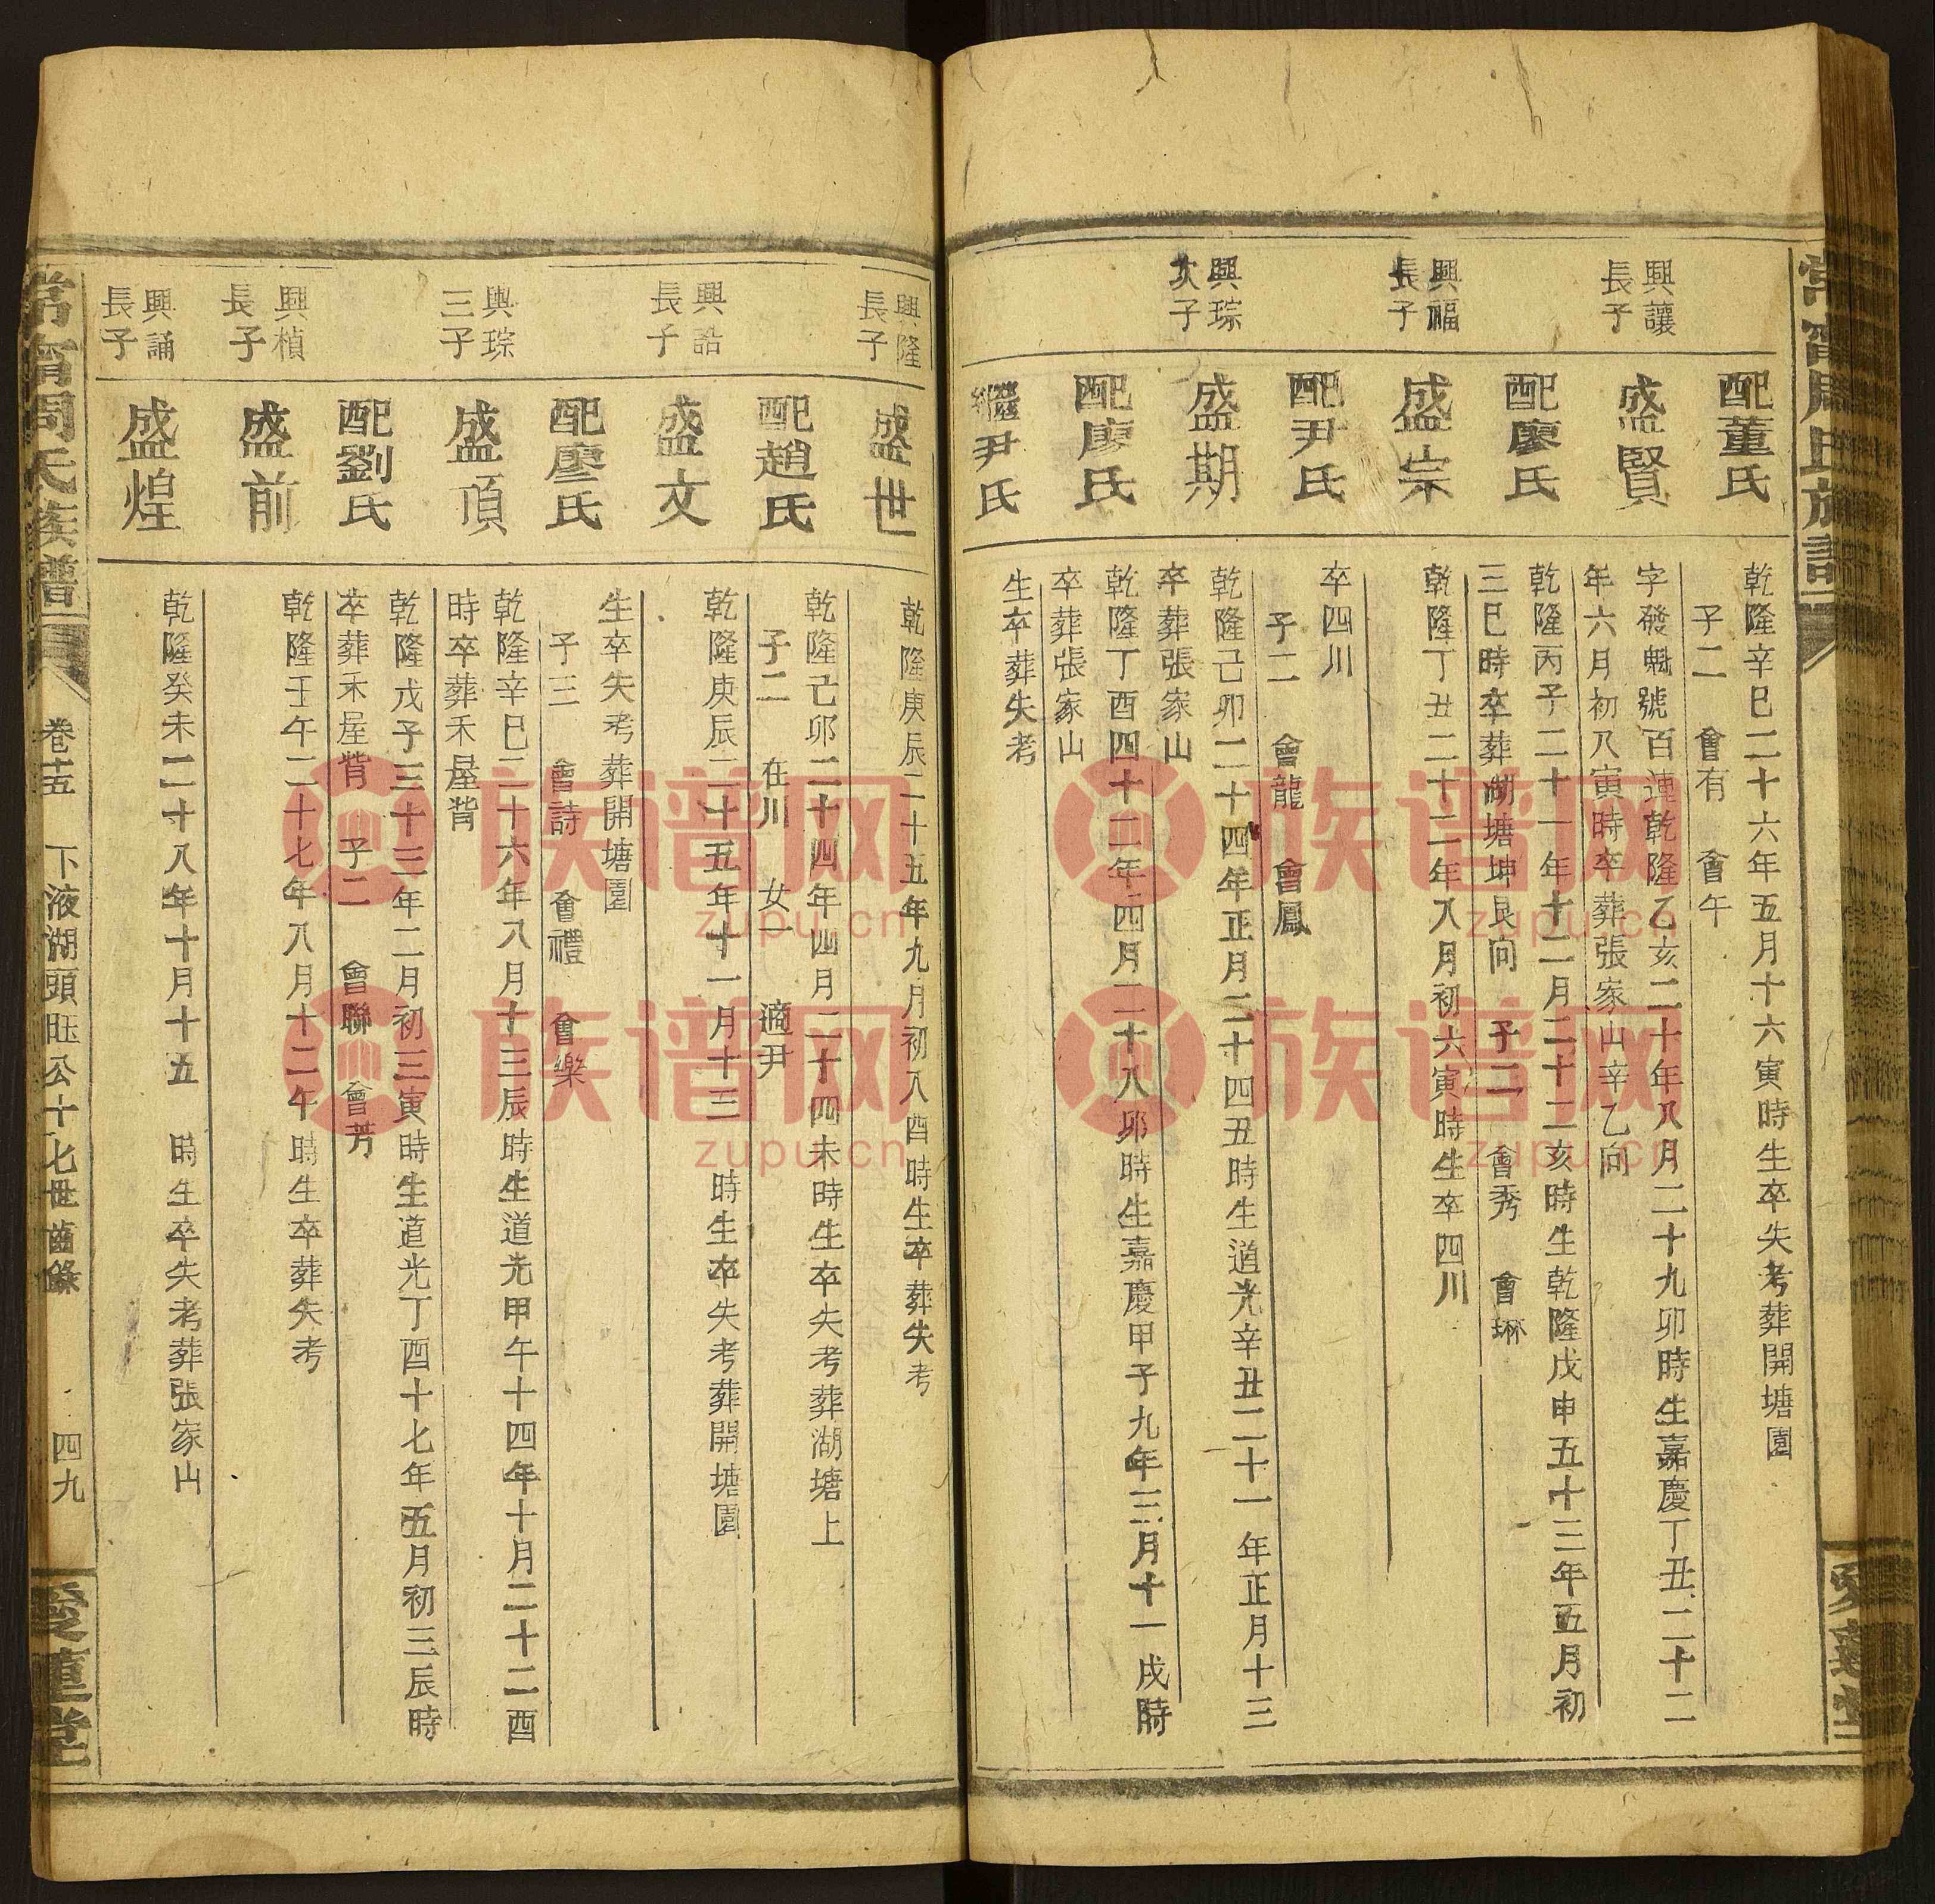 常甯周氏族譜
愛蓮堂
配董氏
乾隆辛巳二十六年五月十六寅時生卒失考葬開塘園
子二 會有 會午
興讓
長子
盛賢
字發魁號百連乾隆乙亥二十年八月二十九卯時生嘉慶丁丑二十二
年六月初八寅時卒葬張家山辛乙向
配廖氏
乾隆丙子二十一年十二月二十二亥時生乾隆戊申五十三年五月初
三巳時卒葬湖塘坤艮向 子二 會秀 會琳
興福
長子
盛宗
乾隆丁丑二十二年八月初六寅時生卒四川
配尹氏
卒四川
子二 會龍 會鳳
興琮
次子
盛期
乾隆己卯二十四年正月二十四丑時生道光辛丑二十一年正月十三
卒葬張家山
配廖氏
乾隆丁酉四十二年四月二十八卯時生嘉慶甲子九年三月十一戌時
卒葬張家山
繼尹氏
生卒葬失考
興隆
長子
盛世
乾隆庚辰二十五年九月初八酉時生卒葬失考
配趙氏
乾隆己卯二十四年四月二十四未時生卒失考葬湖塘上
子二 在川 女一 適尹
興誥
長子
盛文
乾隆庚辰二十五年十一月十三 時生卒失考葬開塘園
配廖氏
生卒失考葬開塘園
子三 會詩 會禮 會樂
興琮
三子
盛項
乾隆辛巳二十六年八月十三辰時生道光甲午十四年十月二十二酉
時卒葬禾屋背
配劉氏
乾隆戊子三十三年二月初三寅時生道光丁酉十七年五月初三辰時
卒葬禾屋背 子二 會聯 會芳
興楨
長子
盛前
乾隆壬午二十七年八月十二午時生卒葬失考
興誦
長子
盛煌
乾隆癸未二十八年十月十五 時生卒失考葬張家山
常甯周氏族譜
卷十五 下液湖頭旺公十七世齒錄
四九
愛蓮堂
族谱网
zupu.cn
族谱网
zupu.cn
族谱网
zupu.cn
族谱网
zupu.cn